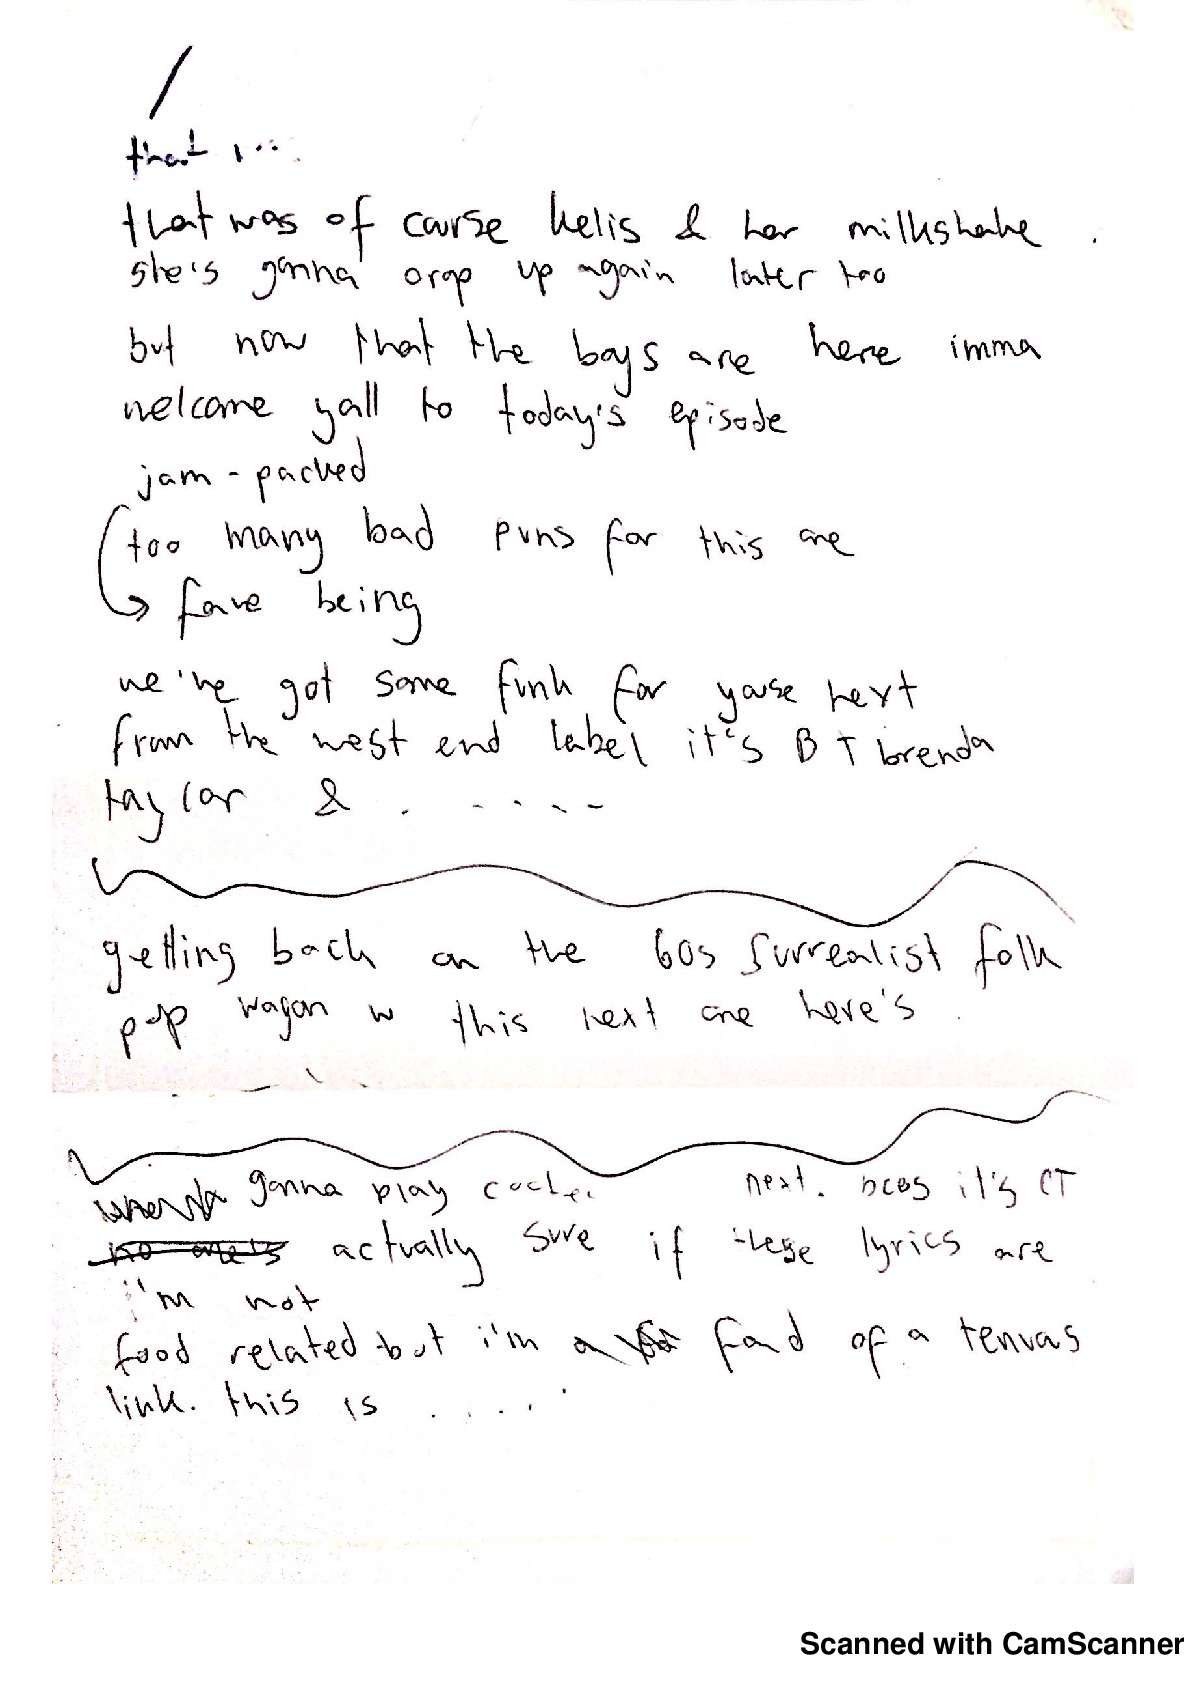 that ...
that was of course kelis & her milkshake.
she's gonna crop up again later too
but now that the boys are here imma
welcome yall to today's episode
jam-packed
too many bad puns for this one
fave being
we've got some funk for youse next
from the west end label it's B T brenda
taylor & . . . . .
getting back on the 60s surrealist folk
pop wagon w this next one here's
gonna play next. bcos it's CT
actually sure if these lyrics are
i'm not
food related but i'm a fond of a tenuas
link. this is . . . . .
Scanned with CamScanner